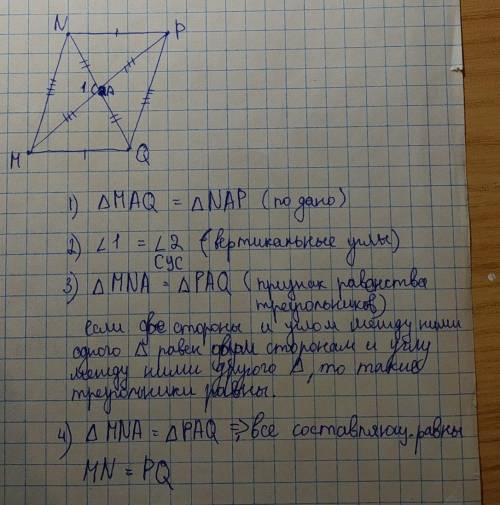 N P
1 2 A
M Q
1) △MAQ = △NAP (по дано)
2) ∠1 = ∠2 (вертикальные углы)
СУС
3) △MNA = △PAQ (признак равенства
треугольников)
если две стороны и углом между ними
одного △ равен двум сторонам и углу
между ними другого △, то такие
треугольники равны.
4) △MNA = △PAQ => все составляющ. равны
MN = PQ